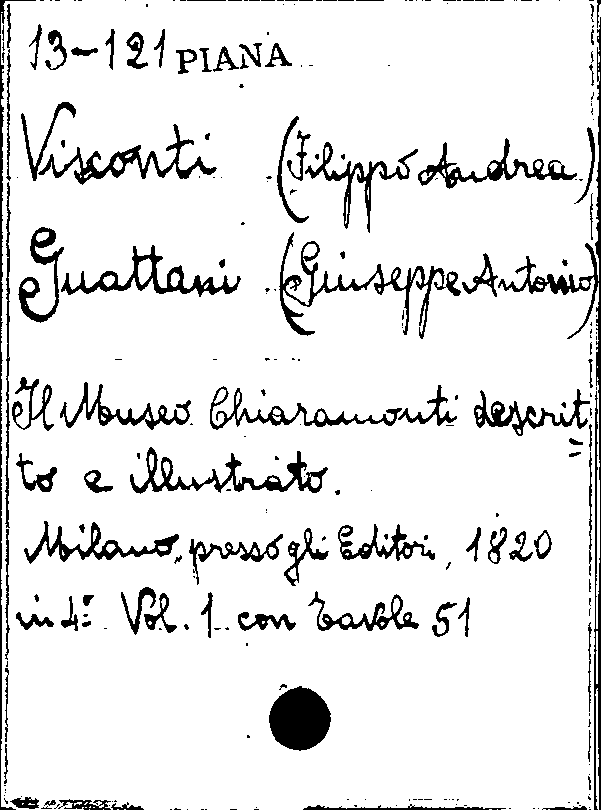 13-121 PIANA
Visconti (Filippo Andrea)
Guattani (Giuseppe Antonio)
Il Museo Chiaramonti descrit=
to e illustrato.
Milano, presso gli Editori, 1820
in 4° Vol. 1 con tavole 51